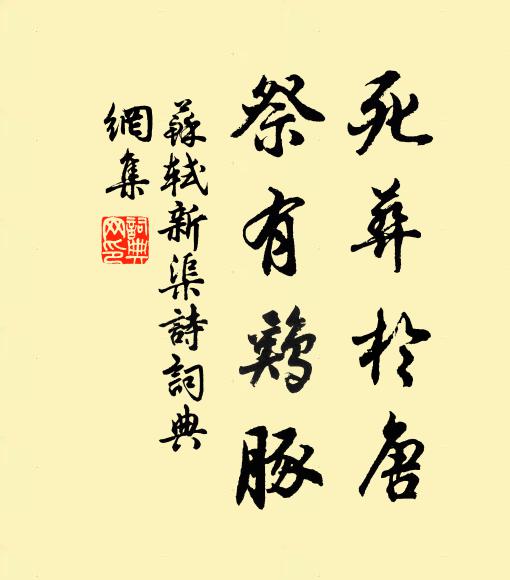 死葬於唐
祭有鷄豚
蘇軾新渠詩詞典
網集
詞典
网印